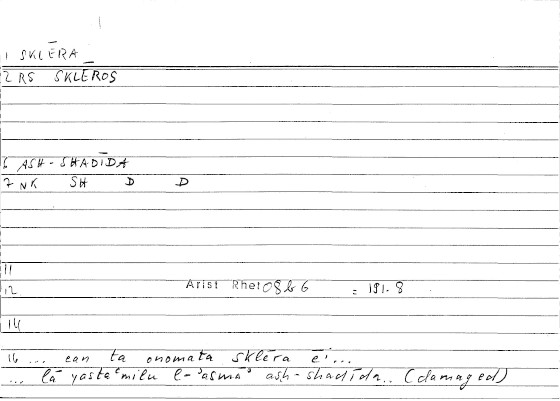 1 SKLĒRA
2 RS SKLĒROS
6 ASH-SHADĪDA
7 NK SH D D
11
12 Arist Rhet 08b6 = 191.8
14
16 ... ean ta onomata sklēra ē̓...
... lā yastaʿmilu l-ʾasmāʾ ash-shadīda.. (damaged)